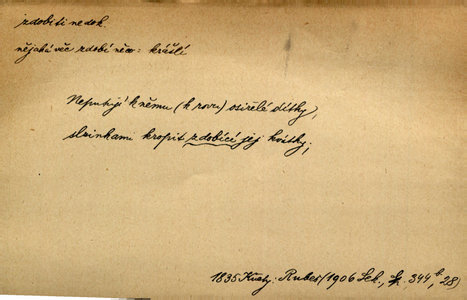 zdobiti nedok.
nějaká věc zdobí něco: krášlí
Neputují k němu (k rovu) osiřelé dítky,
slzinkami kropit zdobící jej kvítky;
1835 Květy. Rubeš (1906 Sek., 344 b, 28)